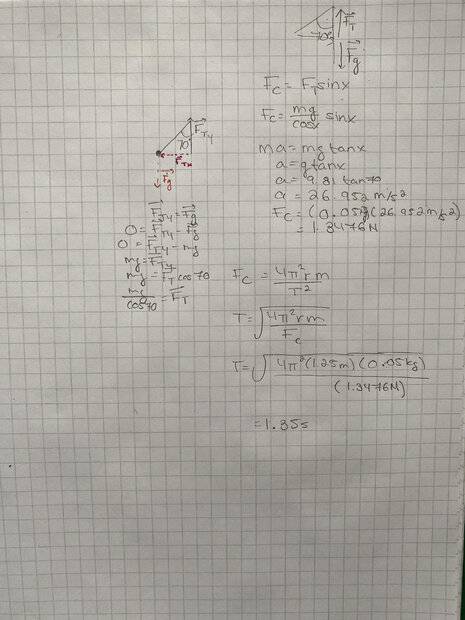 70°
F_T
F_g
F_c = F_T sinx
F_c = mg/cosx sinx
ma = mg tanx
a = g tanx
a = 9.81 tan70
a = 26.952 m/s²
F_c = (0.05kg)(26.952 m/s²)
= 1.3476N
F_Ty
70°
F_Tx
F_g
F_Ty = F_g
0 = F_Ty - F_g
0 = F_Ty - mg
mg = F_Ty
mg = F_T cos70
mg/cos70 = F_T
F_c = 4π²rm/T²
T = √(4π²rm/F_c)
T = √(4π²(1.25m)(0.05kg)/(1.3476N))
= 1.35s